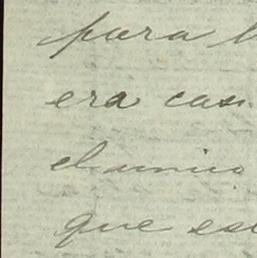 para l
era casi
el unico
que es